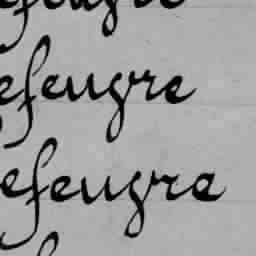 efeugre
efeugre
efeugre